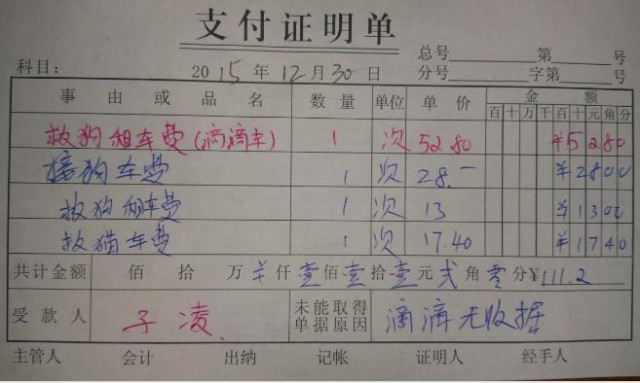 支付证明单
总号 第 号
科目： 2015年12月30日 分号 字第 号
事由或品名 数量 单位 单价 金额
百十万千百十元角分
救狗租车费(滴滴车) 1 次 52.80 ¥5280
接狗车费 1 次 28.- ¥2800
救狗租车费 1 次 13 ¥1300
救猫车费 1 次 17.40 ¥1740
共计金额 佰 拾 万 ¥仟壹佰壹拾壹元贰角零分¥111.2
受款人 子凌 未能取得单据原因 滴滴无收据
主管人 会计 出纳 记帐 证明人 经手人